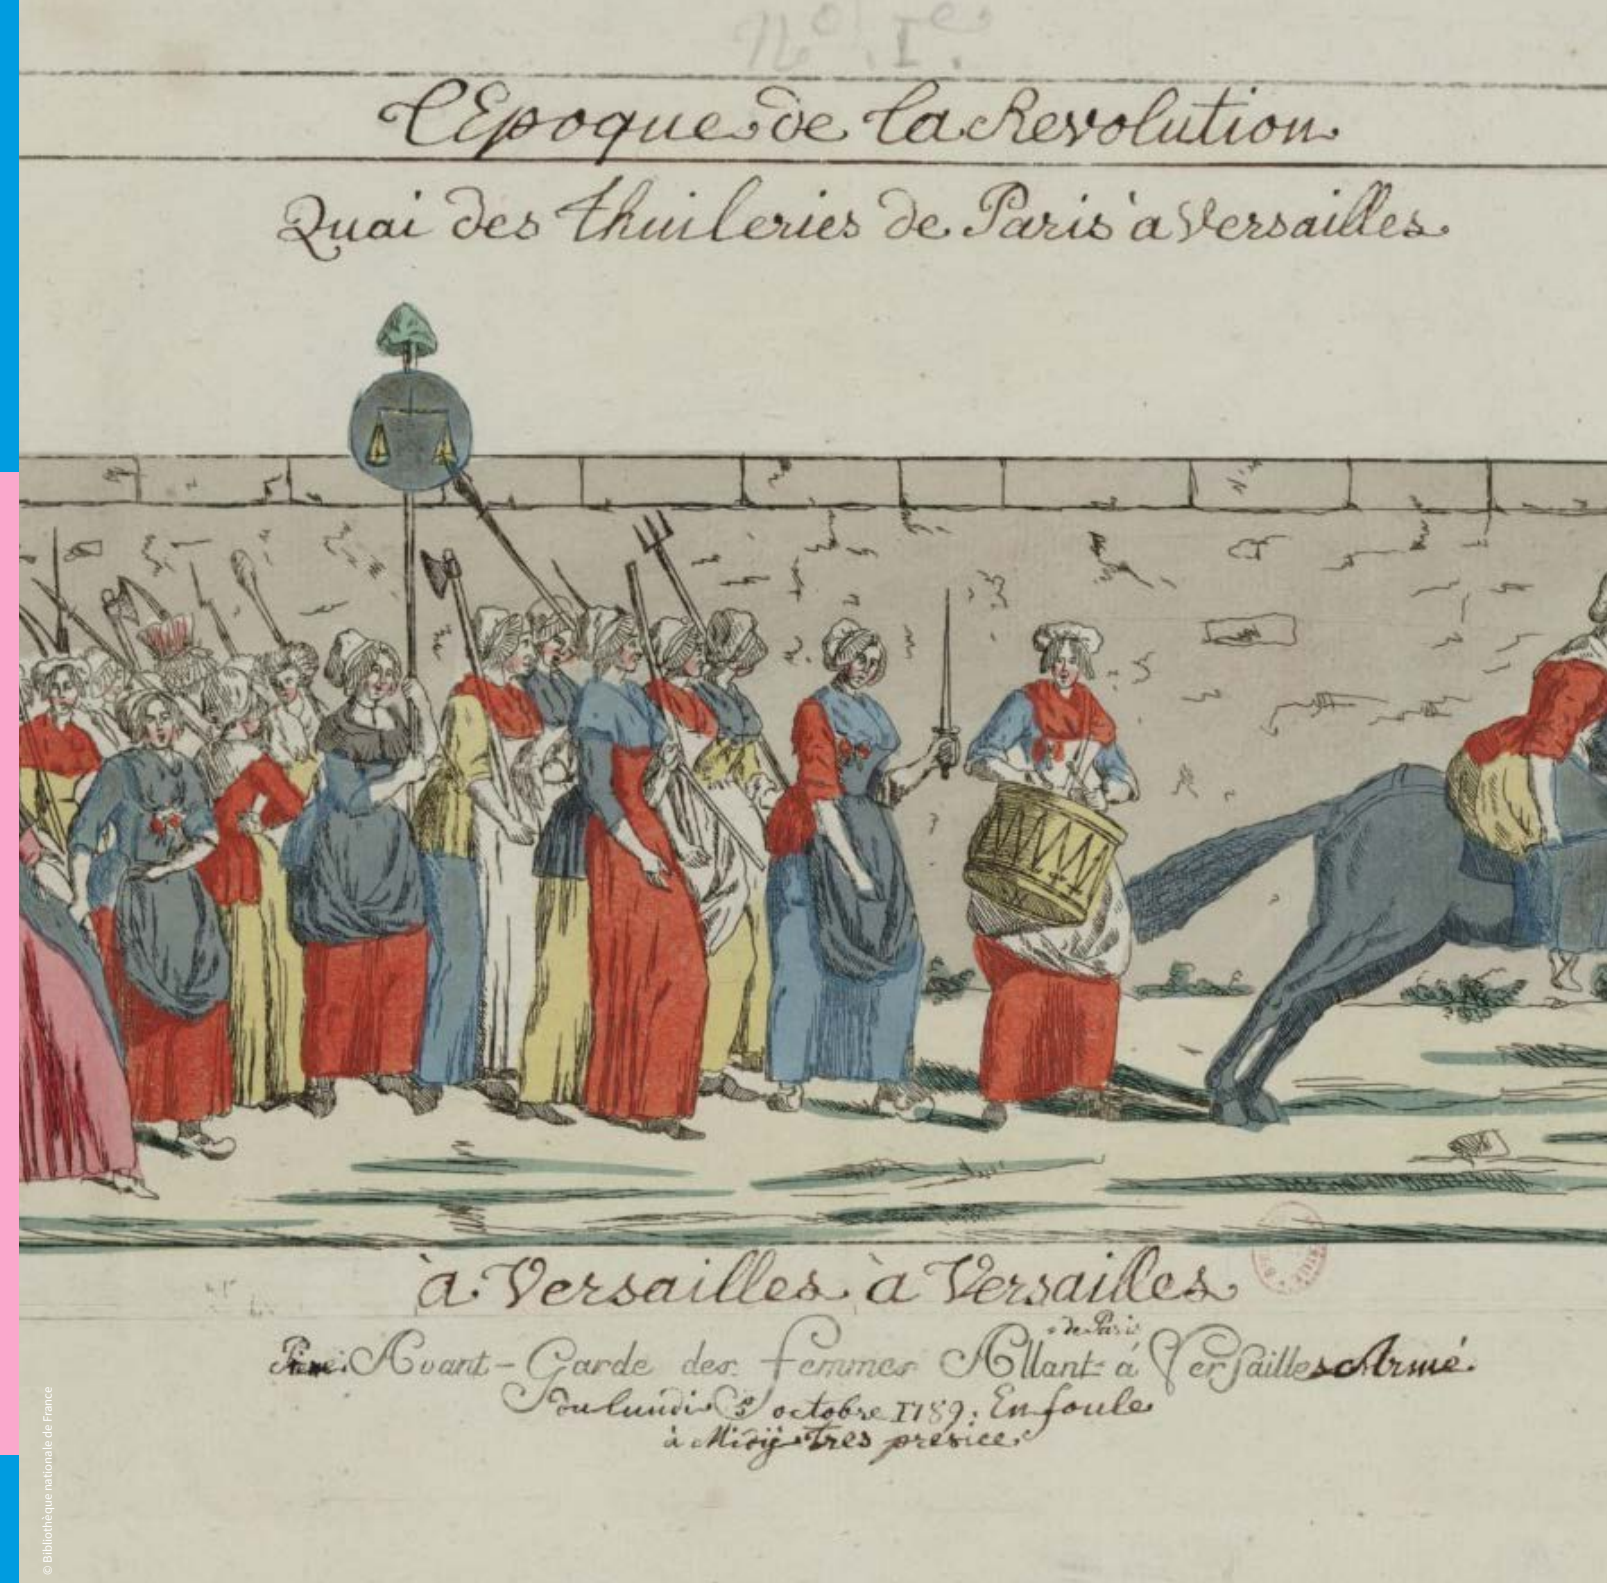 N.º I.re
l'Epoque de la Revolution
Quai des thuileries de Paris à Versailles
à Versailles à Versailles
de Paris
Avant-Garde des femmes Allant à Versailles Armé
du lundi 5 octobre 1789: En foule
à Midÿ tres presice
© Bibliothèque nationale de France